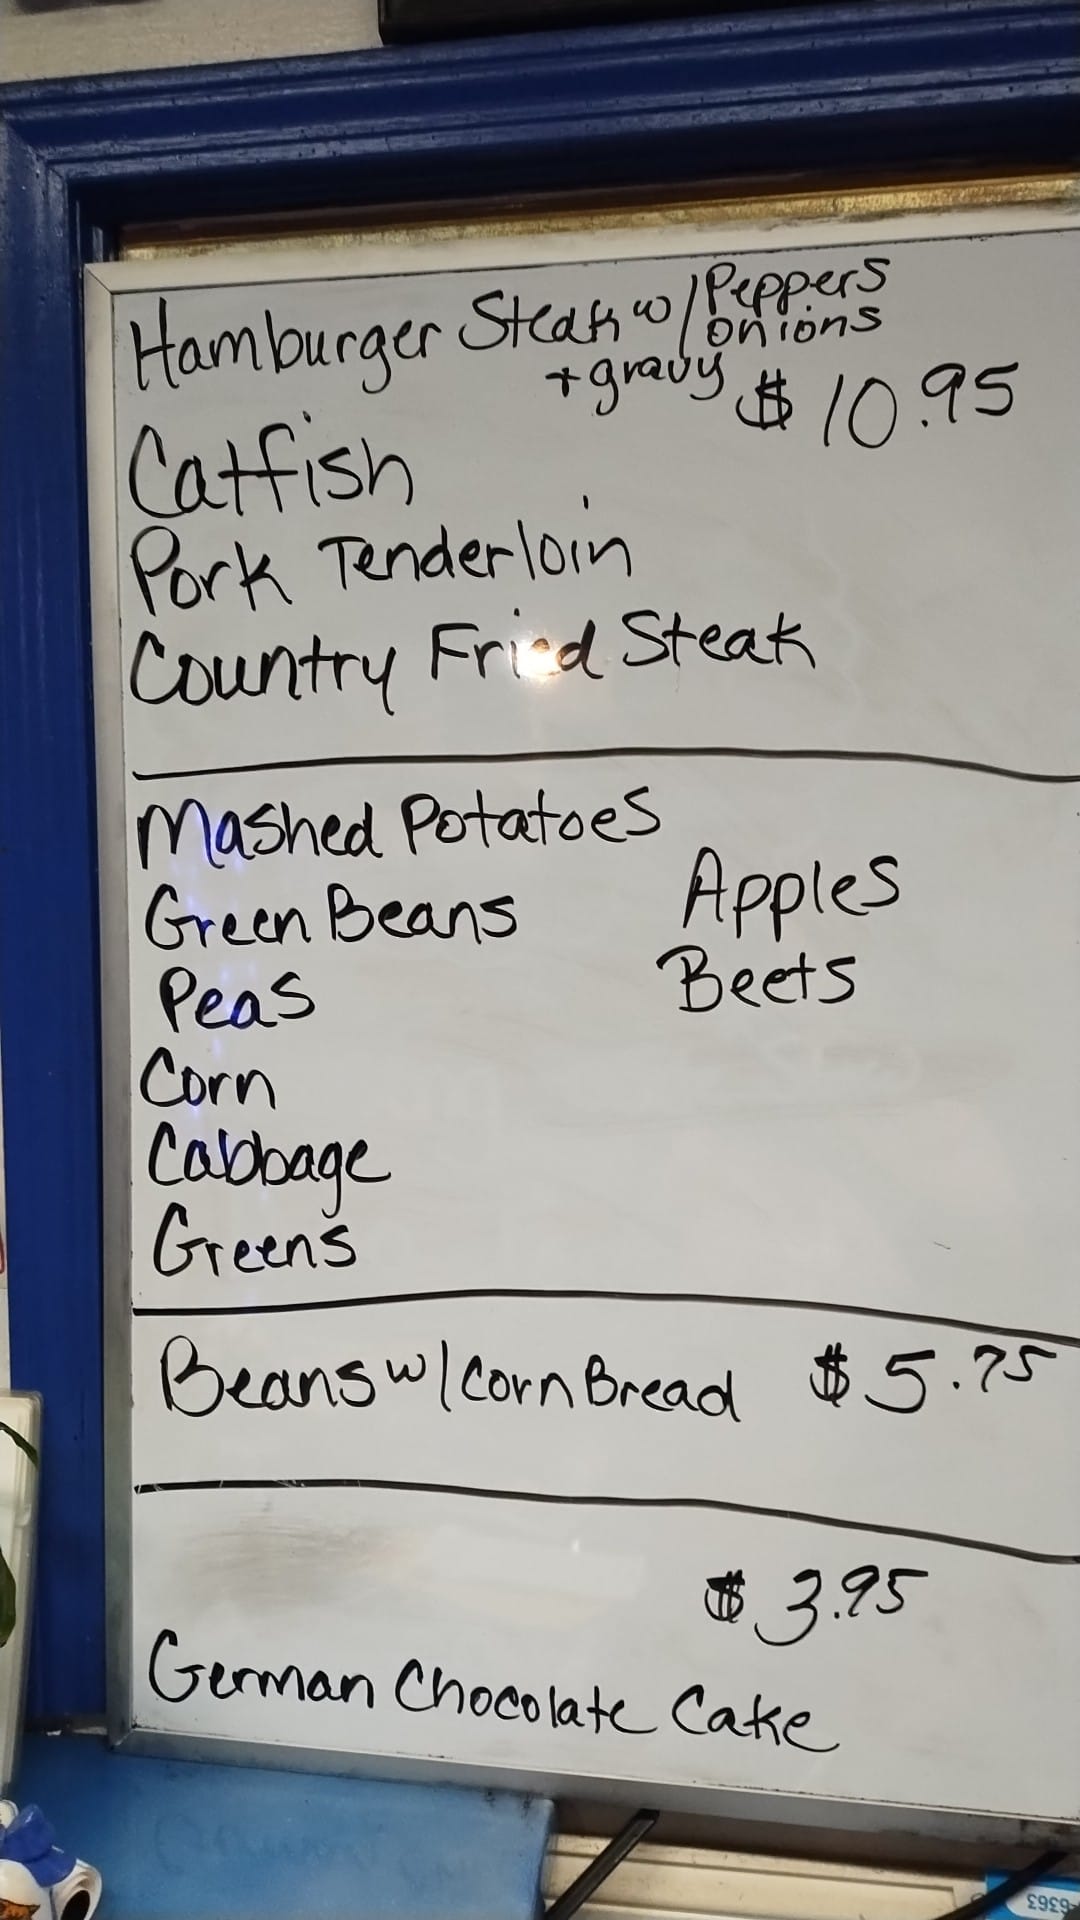 Hamburger Steak w/ Peppers
onions
+ gravy $ 10.95
Catfish
Pork Tenderloin
Country Fried Steak
Mashed Potatoes
Green Beans
Apples
Peas
Beets
Corn
Cabbage
Greens
Beans w/ Corn Bread $ 5.75
$ 3.95
German Chocolate Cake